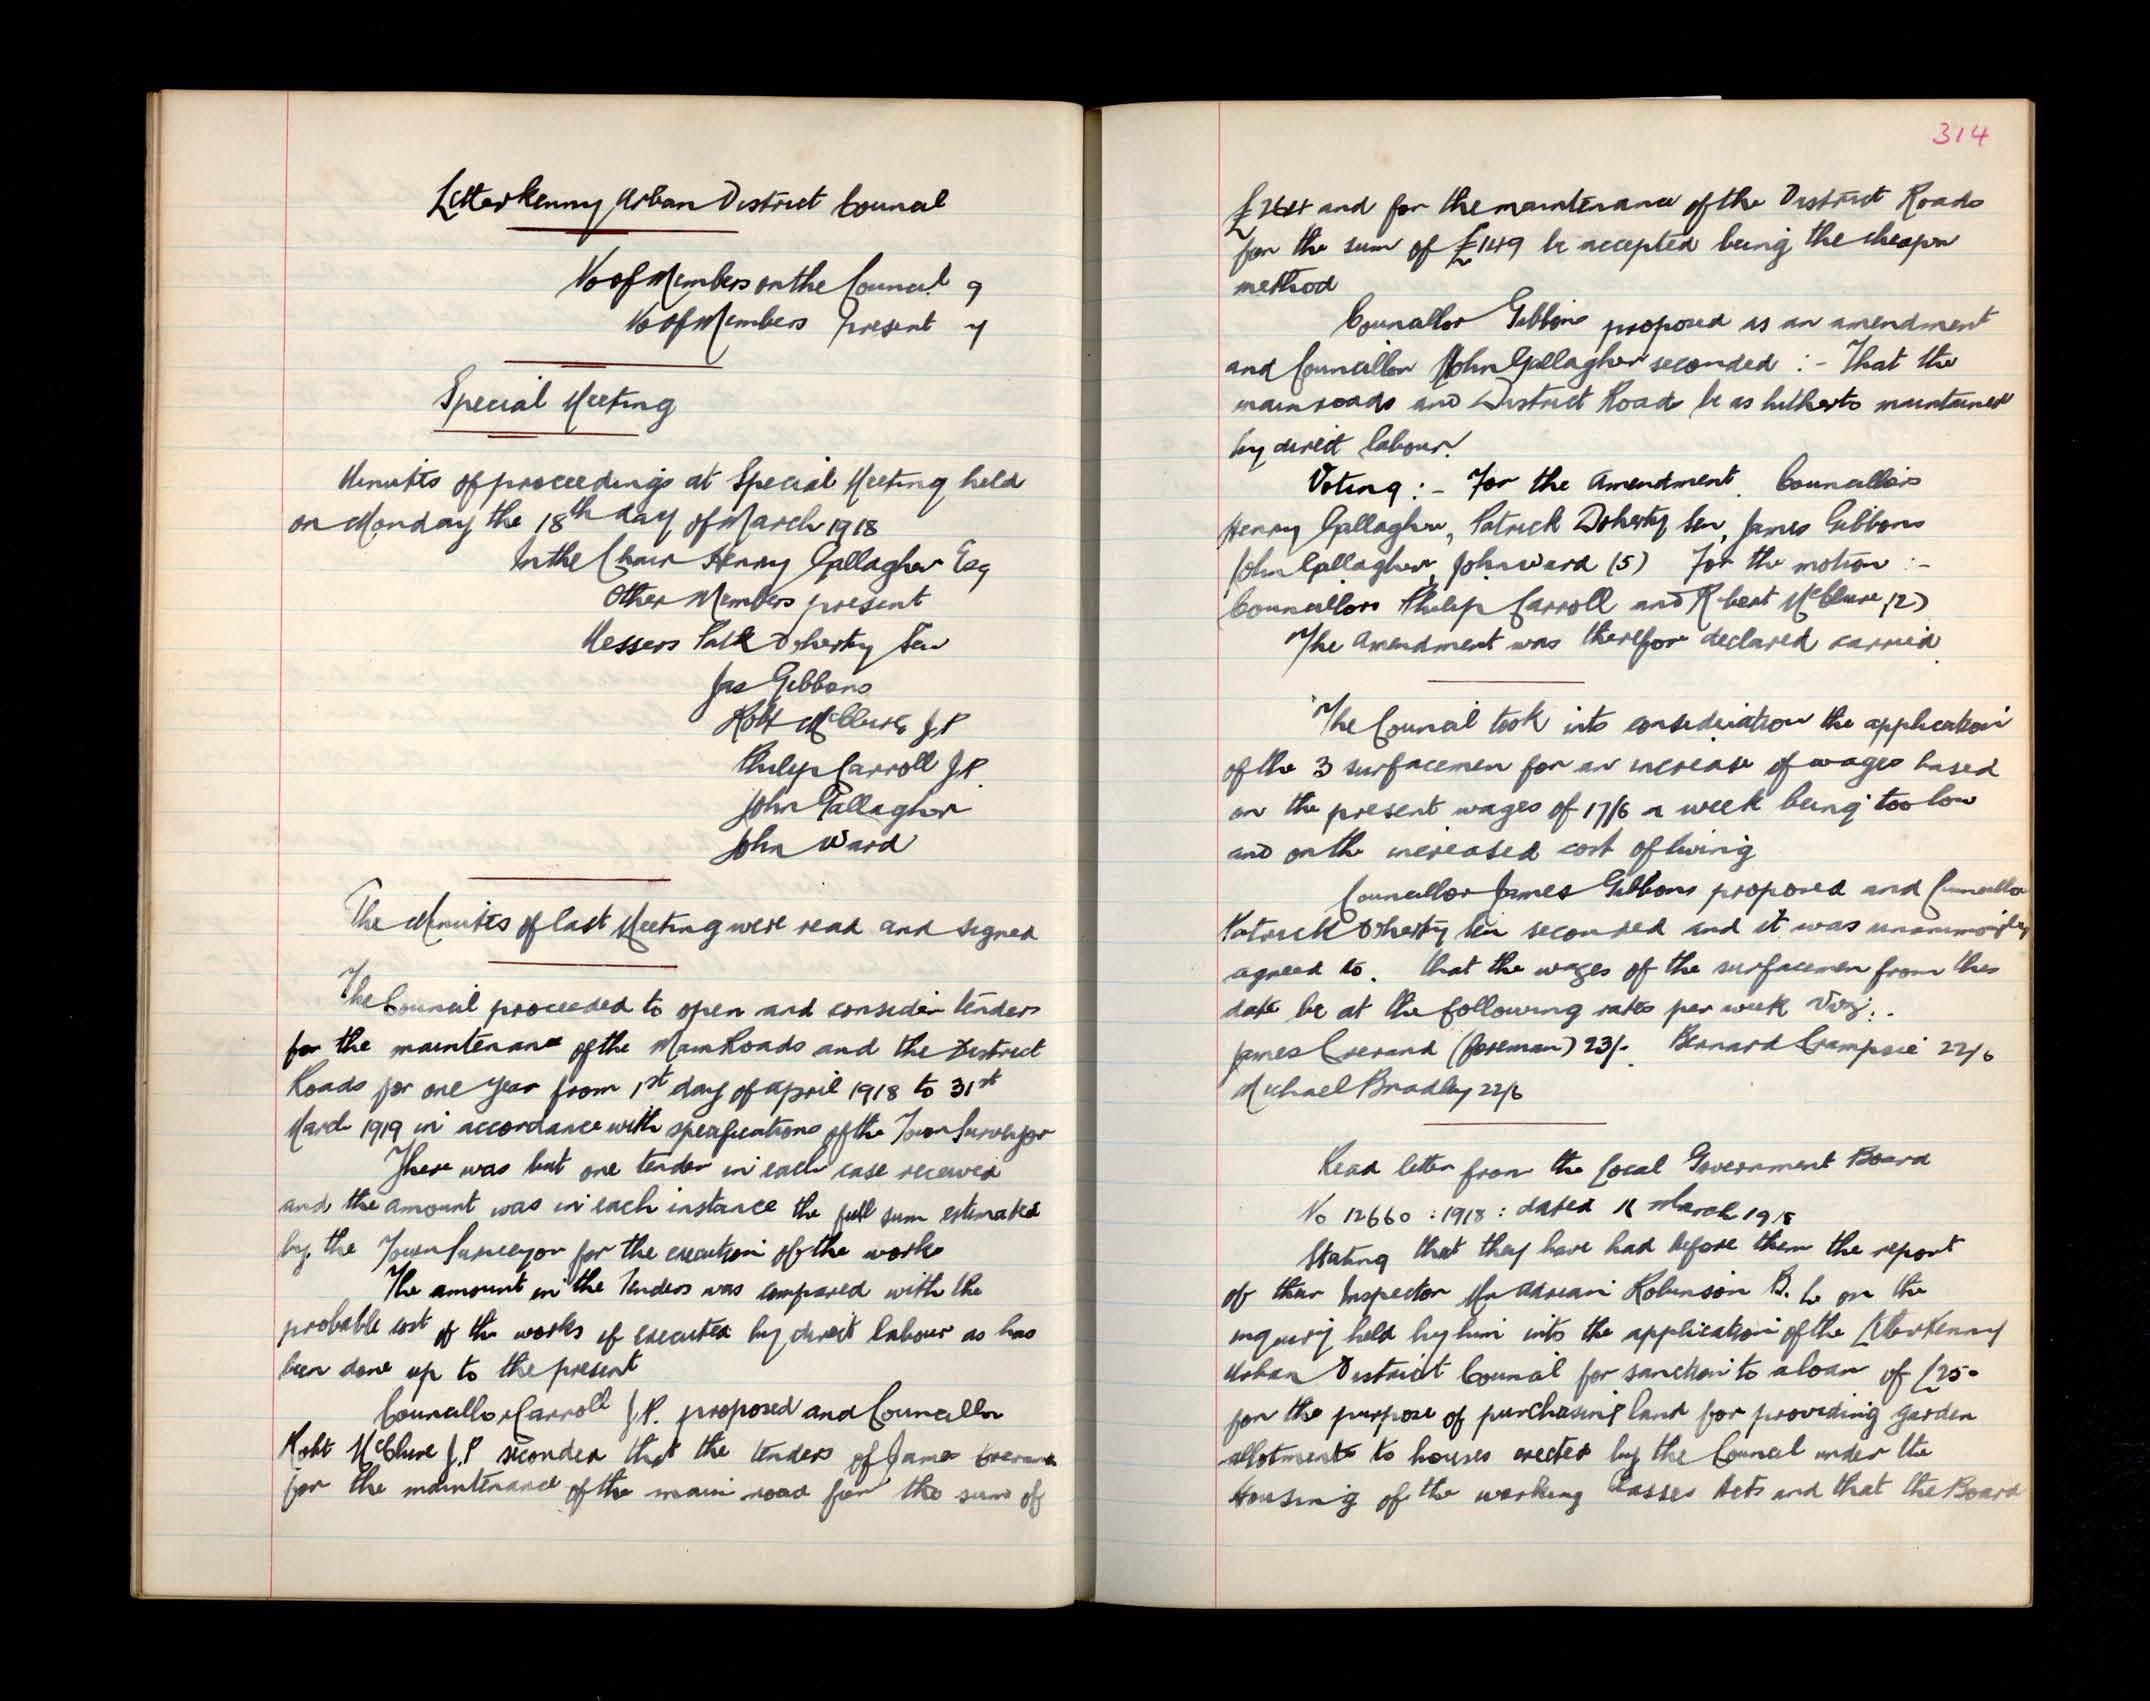 Letterkenny Urban District Council
No of Members on the Council 9
No of Members Present 7
Special Meeting
Minutes of proceedings at Special Meeting held
on Monday the 18th day of March 1918
In the Chair Henry Gallagher Esq
Other Members present
Messers Patk Doherty Sen
Jas Gibbons
Robt McClure J.P
Philip Carroll J.P.
John Gallagher
John Ward
The Minutes of last Meeting were read and signed
The Council proceeded to open and consider tenders
for the maintenance of the Main Roads and the District
Roads for one year from 1st day of april 1918 to 31st
March 1919 in accordance with specifications of the Town Surveyor
There was but one tender in each case received
and the amount was in each instance the full sum estimated
by the Town Surveyor for the execution of the works
The amount in the Tenders was compared with the
probable cost of the works if executed by direct labour as has
been done up to the present
Councillor Carroll J.P. proposed and Councillor
Robt McClure J.P seconded that the tenders of James Crerand
for the maintenance of the main road for the sum of
314
and for the maintenance of the District Roads
for the sum of £149 be accepted being the cheaper
method
Councillor Gibbons proposed as an amendment
and Councillor John Gallagher seconded :- That the
main roads and District Roads be as hitherto maintained
by direct labour.
Voting :- For the Amendment. Councillors
Henry Gallagher, Patrick Doherty Sen, James Gibbons
John Gallagher, John Ward (5) For the motion :-
Councillors Philip Carroll and Robert McClure (2)
The Amendment was therefor declared carried
The Council took into consideration the application
of the 3 surfacemen for an increase of wages based
on the present wages of 17/6 a week being too low
and on the increased cost of living
Councillor James Gibbons proposed and Councillor
Patrick Doherty Sen seconded and it was unanimously
agreed to. that the wages of the surfacemen from this
date be at the following rates per week Viz:.
James Crerand (foreman) 23/-. Bernard Crampsie 22/6
Michael Bradley 22/6
Read letter from the Local Government Board
No 12660 : 1918 : dated March 1918
Stating that they have had before them the report
of their Inspector Mr Adrian Robinson B. L. on the
inquiry held by him into the application of the Letterkenny
Urban District Council for sanction to a loan of £250
for the purpose of purchasing land for providing garden
allotments to houses erected by the Council under the
Housing of the working Classes Acts and that the Board